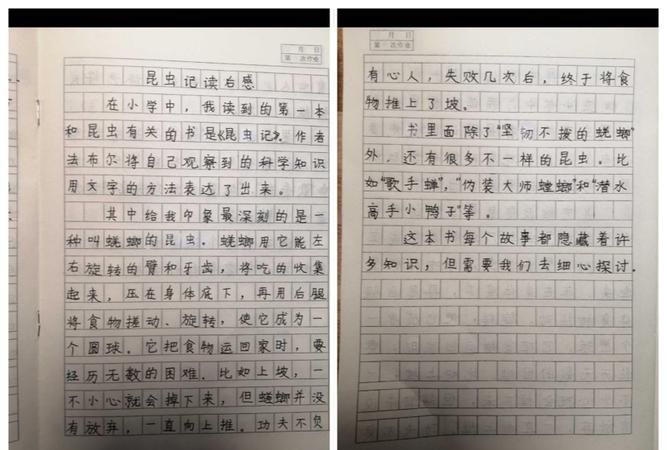 月 日
第 次作业
昆虫记读后感
在小学中，我读到的第一本
和昆虫有关的书是《昆虫记》。作者
法布尔将自己观察到的科学知识
用文字的方法表达了出来。
其中给我印象最深刻的是一
种叫蜣螂的昆虫。蜣螂用它能左
右旋转的臂和牙齿，将吃的收集
起来，压在身体底下，再用后腿
将食物搓动、旋转，使它成为一
个圆球。它把食物运回家时，要
经历无数的困难．比如上坡，一
不小心就会掉下来，但蜣螂并没
有放弃，一直向上推。功夫不负
月 日
第 次作业
有心人，失败几次后，终于将食
物推上了坡。
书里面除了“坚韧不拨的蜣螂”
外，还有很多不一样的昆虫。比
如“歌手蝉”，“伪装大师螳螂”和“潜水
高手小鸭子”等。
这本书每个故事都隐藏着许
多知识，但需要我们去细心探讨．